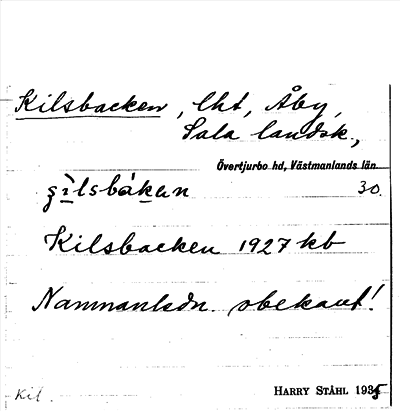 Kilsbacken, lht, Åby,
Sala landsk.,
Övertjurbo hd, Västmanlands län.
30.
Kilsbacken 1927 kb
obekant!
Kil.
HARRY STÅHL 1935